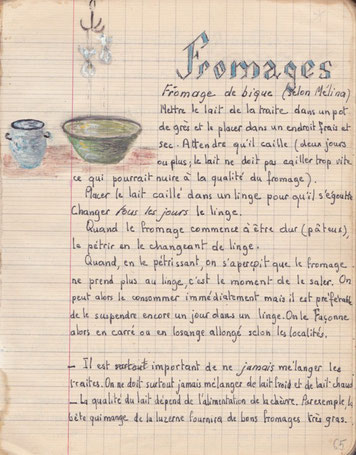 Fromages
Fromage de bique (selon Mélina)
Mettre le lait de la traite dans un pot
de grès et le placer dans un endroit frais et
sec. Attendre qu'il caille (deux jours
ou plus; le lait ne doit pas cailler trop vite
ce qui pourrait nuire à la qualité du fromage).
Placer le lait caillé dans un linge pour qu'il s'égoutte
Changer tous les jours le linge.
Quand le fromage commence à être dur (pâteux),
le pétrir en le changeant de linge.
Quand, en le pétrissant on s'aperçoit que le fromage
ne prend plus au linge, c'est le moment de le saler. On
peut alors le consommer immédiatement mais il est préférable
de le suspendre encore un jour dans un linge. On le façonne
alors en carré ou en losange allongé selon les localités.
_ Il est surtout important de ne jamais mélanger les
traites. On ne doit surtout jamais mélanger de lait froid et de lait chaud
_ La qualité du lait dépend de l'alimentation de la chèvre. Par exemple, la
bête qui mange de la luzerne fournira de bons fromages très gras.